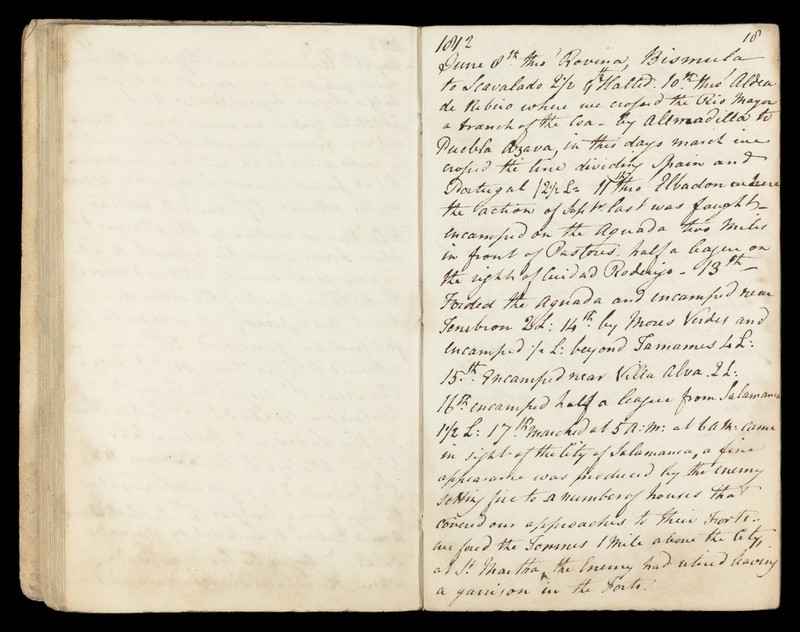 1812 18
June 8th thro' Rovina, Bismula
to Scavalado 2½ 9th Halted. 10th thro' Aldea
de Rebiro where we crossed the Rio Mayor
a branch of the Coa - by Allmadilla to
Puebla Azava, in this days march we
crossed the line dividing Spain and
Portugal 2½ L= 11th thro' Elbadon where
the action of Sepbr last was faught -
encamped on the Aguada two miles
in front of Pastores. half a league on
the right of Cuidad Roderigo - 13th -
Forded the Aguada and encamped near
Tenebron 2 L: 14th by Moras Verdes and
encamped ½ L: beyond Tamames 4 L:
15th. Encamped near Villa Alva. 2 L:
16th encamped half a league from Salamanca
1½ L: 17th marched at 5 A:M: at 6 A M: came
in sight of the City of Salamanca, a fine
appearance was produced by the enemy
setting fire to a number of houses that
covered our approaches to their Forts.
we ford the Tormes 1 Mile above the City,
at St Martha, the Enemy had retired leaving
a garrison in the Forts.